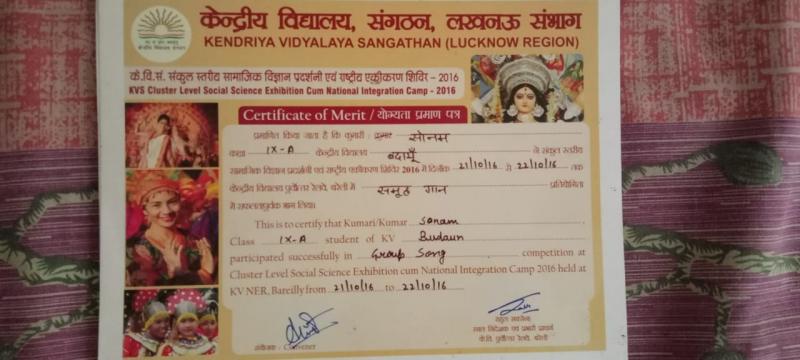 केन्द्रीय विद्यालय, संगठन, लखनऊ संभाग
KENDRIYA VIDYALAYA SANGATHAN (LUCKNOW REGION)
के.वि.सं. संकुल स्तरीय सामाजिक विज्ञान प्रदर्शनी एवं राष्ट्रीय एकीकरण शिविर – 2016
KVS Cluster Level Social Science Exhibition Cum National Integration Camp - 2016
Certificate of Merit / योग्यता प्रमाण पत्र
प्रमाणित किया जाता है कि कुमारी / कुमार सोनम
कक्षा IX-A केन्द्रीय विद्यालय बदायूँ ने संकुल स्तरीय
सामाजिक विज्ञान प्रदर्शनी एवं राष्ट्रीय एकीकरण शिविर 2016 में दिनांक 21/10/16 से 22/10/16 तक
केन्द्रीय विद्यालय पूर्वोत्तर रेलवे, बरेली में समूह गान प्रतियोगिता
में सफलतापूर्वक भाग लिया।
This is to certify that Kumari/Kumar Sonam
Class IX-A student of KV Budaun
participated successfully in Group Song competition at
Cluster Level Social Science Exhibition cum National Integration Camp 2016 held at
KV NER, Bareilly from 21/10/16 to 22/10/16
संयोजक - Convener
राहुल सक्सेना
स्थल निदेशक एवं प्रभारी प्राचार्य
के.वि. पूर्वोत्तर रेलवे, बरेली